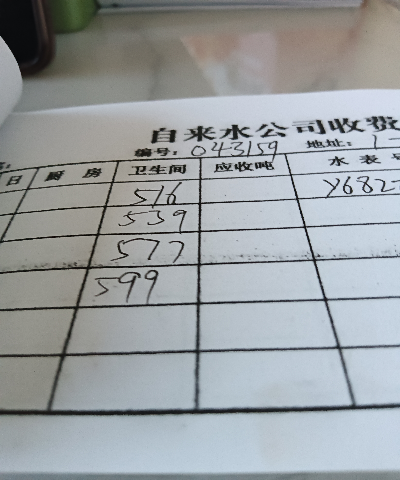 自来水公司收费
编号：043159 地址：1-
日 厨 房 卫生间 应收吨 水 表 号
516 Y682
539
577
599